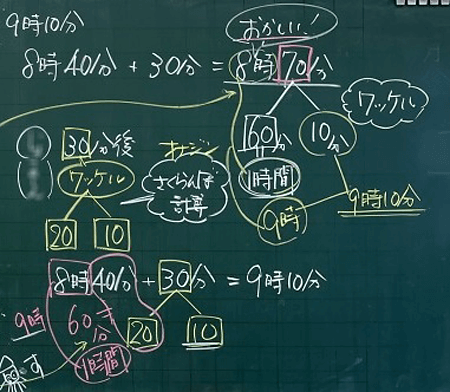 9時10分
おかしい!
8時40分 + 30分 = 8時70分
ワッケル
60分
10分
30分後
オナジン
1時間
ワッケル
さくらんぼ
計算
9時
9時10分
20
10
8時40分 + 30分 = 9時10分
9時
60
分
20
10
1時間